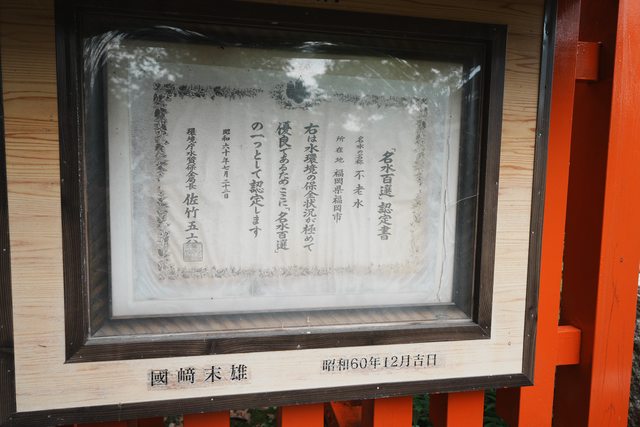 「名水百選」認定書
名水の名称 不老水
所在地 福岡県福岡市
右は水環境の保全状況が極めて
優良であるためここに「名水百選」
の一つとして認定します
昭和六十年七月二十二日
環境庁水質保全局長 佐竹五六
國﨑末雄
昭和60年12月吉日